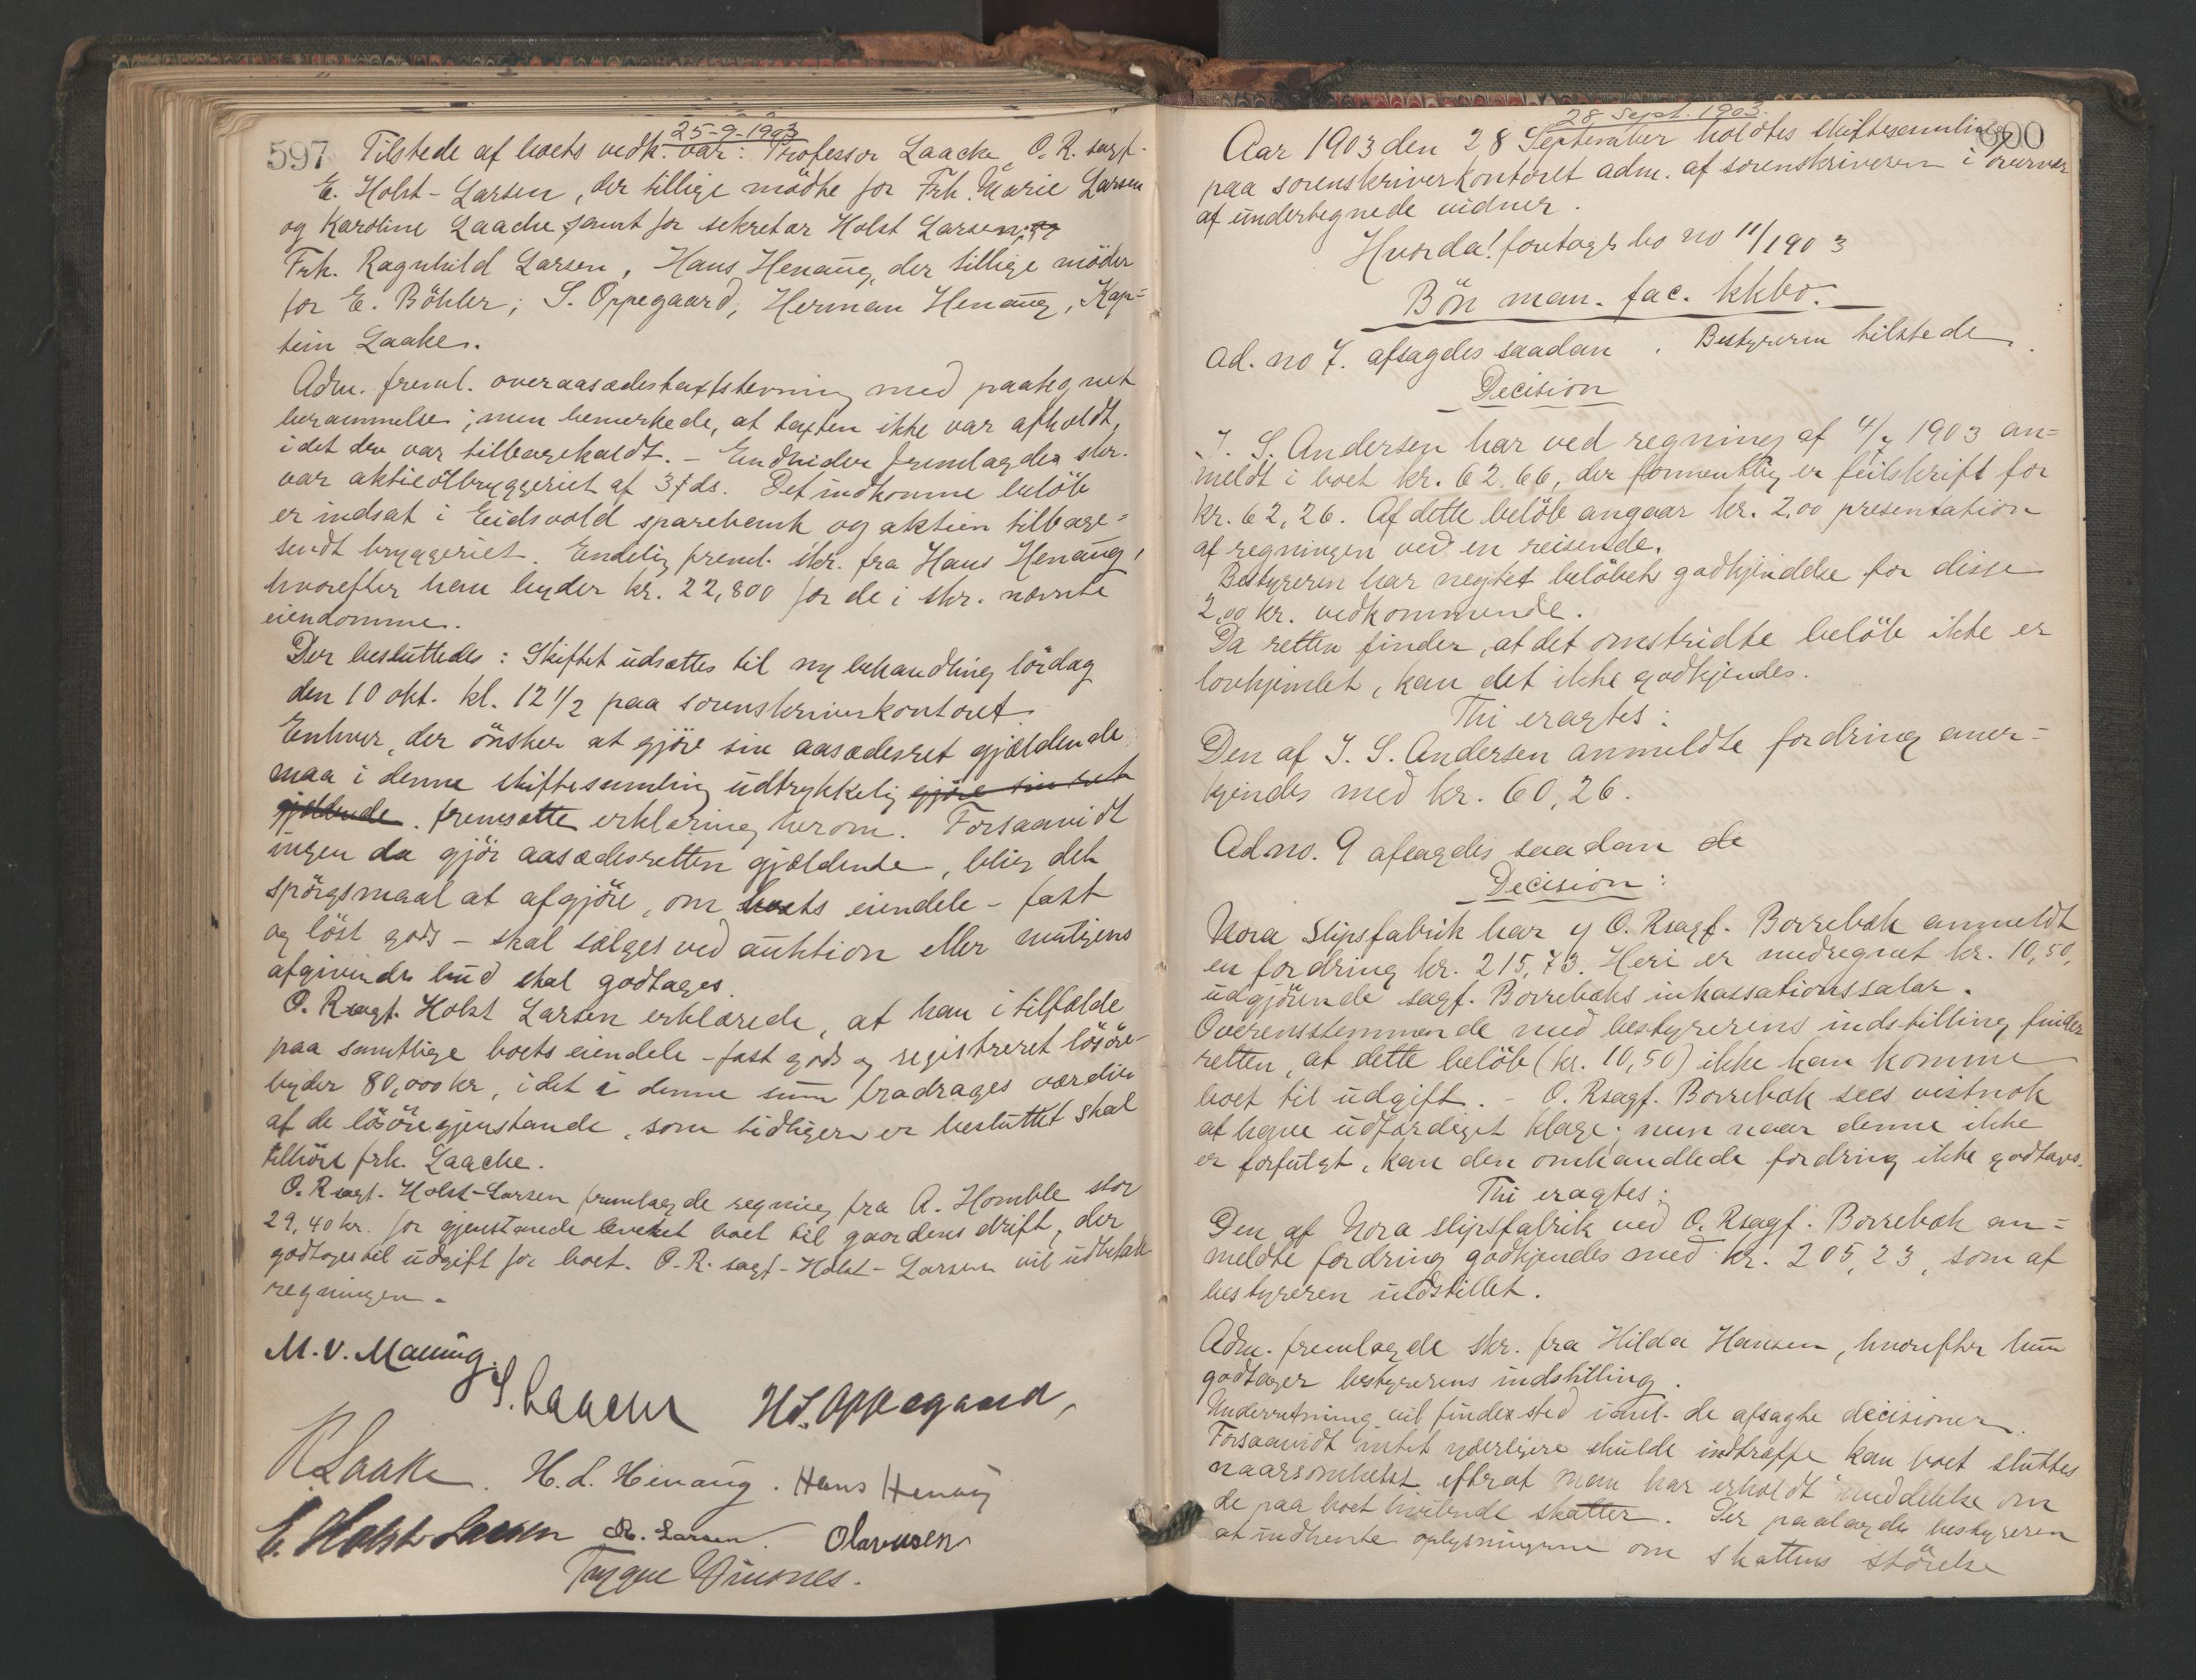 25-9-1903
597 Tilstede af boets vedk. var: Professor Laache, O. R. sagf.
E. Holst-Larsen, der tillige mödte for Frk. Marie Larsen
og Karoline Laache samt for sekretær Holst Larsen;
Frk. Ragnhild Larsen, Hans Henaug, der tillige möder
for E. Böhler; S. Oppegaard, Herman Henaug, Kap=
tein Laake.
Adm. freml. overaasædestaxtstevning med paategnet
berammelse; men bemerkede, at taxten ikke var afholdt,
idet den var tilbagekaldt. – Endvidere fremlagdes skr.
var aktieölbryggeriet af 3/7 ds. Det indkomne belöb
er indsat i Eidsvold sparebank og aktien tilbage=
sendt bryggeriet. Endelig freml. skr. fra Hans Henaug,
hvorefter han byder kr. 22,800 for de i skr. nævnte
eiendomme.
Der besluttedes: Skiftet udsættes til ny behandling lördag
den 10 okt. kl. 12 1/2 paa sorenskriverkontoret.
Enhver, der önsker at gjöre sin aasædesret gjældende
maa i denne skiftesamling udtrykkelig gjöre sin ret
gjældende. fremsætte erklæring herom. Forsaavidt
ingen da gjör aasædesretten gjældende, bliver det
spörgsmaal at afgjöre, om boets eiendele – fast
og löst gods – skal sælges ved auktion eller mulgens
afgivende bud skal godtages.
O. Rsagf. Holst Larsen erklærede, at han i tilfælde
paa samtlige boets eiendele – fast gods og registreret lösöre –
byder 80,000 kr, idet i denne sum fradrages værdien
af de lösöregjenstande, som tidligere er besluttet skal
tilhöre frk. Laache.
O. Rsagf. Holst-Larsen fremlagde regning fra A. Homble stor
29,40 kr. for gjenstande leveret boet til gaardens drift, der
godtoges til udgift for boet. O. R. sagf. Holst-Larsen vil udbetale
regningen.
M. V. Maurig.
S. Laache H.S. Oppegaard,
R. Laake. H. L. Henaug. Hans Henaug
E. Holst Larsen R. Larsen. Olavesen
Trygve
28 Sept. 1903.
600
Aar 1903 den 28 September holdtes skiftesamling
paa sorenskriverkontoret adm. af sorenskriveren i overvær
af undertegnede vidner.
Hvorda! foretoges bo no 11/1903
Bön man. fac. kkbo.
ad. no 7. afsagdes saadan. Bestyreren tilstede.
Decision
J. S. Andersen har ved regning af 4/7 1903 an=
meldt i boet kr. 62.66, der formentlig er feilskrift for
kr. 62,26. Af dette belöb angaar kr. 2,00 presentation
af regningen ved en reisende.
Bestyreren har negtet belöbets godkjendelse for disse
2,00 kr. vedkommende.
Da retten finder, at det omstridte belöb ikke er
lovhjemlet, kan det ikke godkjendes.
Thi eragtes:
Den af J. S. Andersen anmeldte fordring aner=
kjendes med kr. 60,26.
Ad no. 9 afsagdes saadan de
Decision:
Nora Slipsfabrik har v O. Rsagf. Borrebæk anmeldt
en fordring kr. 215,73. Heri er medregnet kr. 10,50,
udgjörende sagf. Borrebæks inkassationssalær.
Overensstemmende med bestyrerens indstilling finder
retten, at dette belöb (kr. 10,50) ikke kan komme
boet til udgift. – O. Rsagf. Borrebæk sees vistnok
at have udfærdiget klage; men naar denne ikke
er forfulgt, kan den omhandlede fordring ikke godtages.
Thi eragtes:
Den af Nora slipsfabrik ved O. Rsagf. Borrebæk an=
meldte fordring godkjendes med kr. 205,23, som af
bestyreren indstillet.
Adm. fremlagde skr. fra Hilda Hansen, hvorefter hun
godtager bestyrerens indstilling.
Underretning vil finde sted ianl. de afsagte decisioner.
Forsaavidt intet yderligere skulde indtræffe kan boet sluttes
naarsomhelst efterat man har erholdt meddelelse om
de paa boet hvilende skatter. Der paalagdes bestyreren
at indhente oplysningerne om skattens störelse